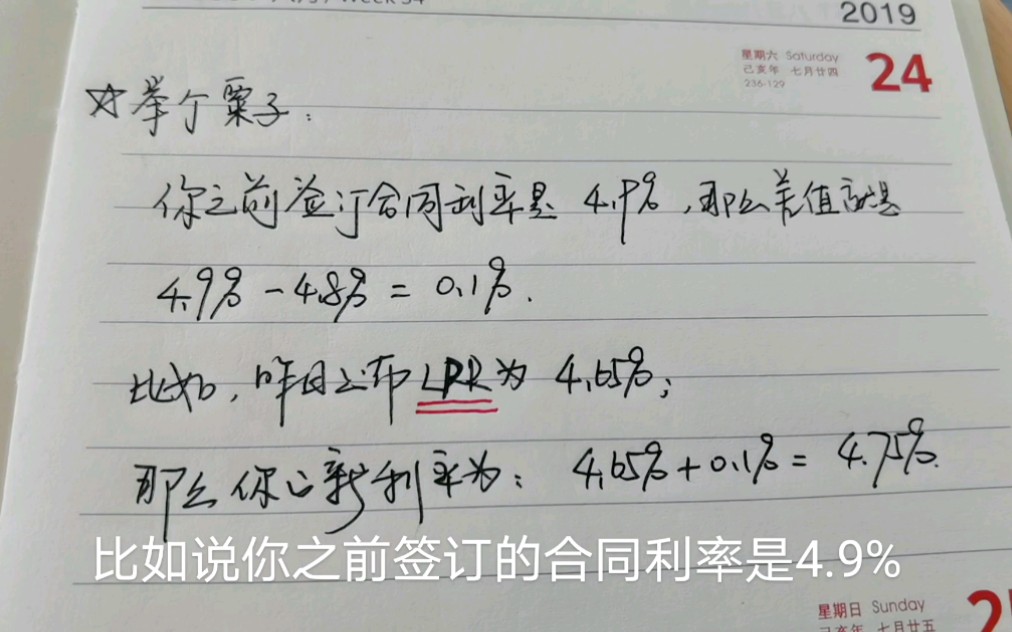 2019
星期六 Saturday
己亥年 七月廿四
236-129
24
☆举个栗子：
你之前签订合同利率是 4.9%，那么差值就是
4.9%-4.8%=0.1%.
比如，昨日公布LPR为 4.65%；
那么你的新利率为：4.65%+0.1%=4.75%.
比如说你之前签订的合同利率是4.9%
星期日 Sunday
己亥年 七月廿五